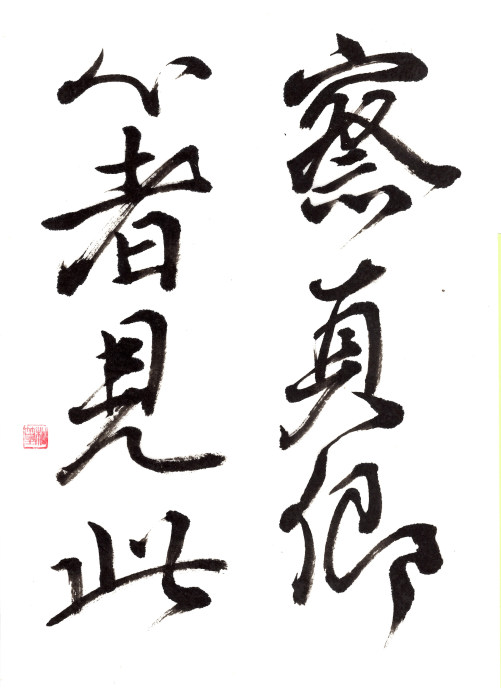 察真卿
心者見此